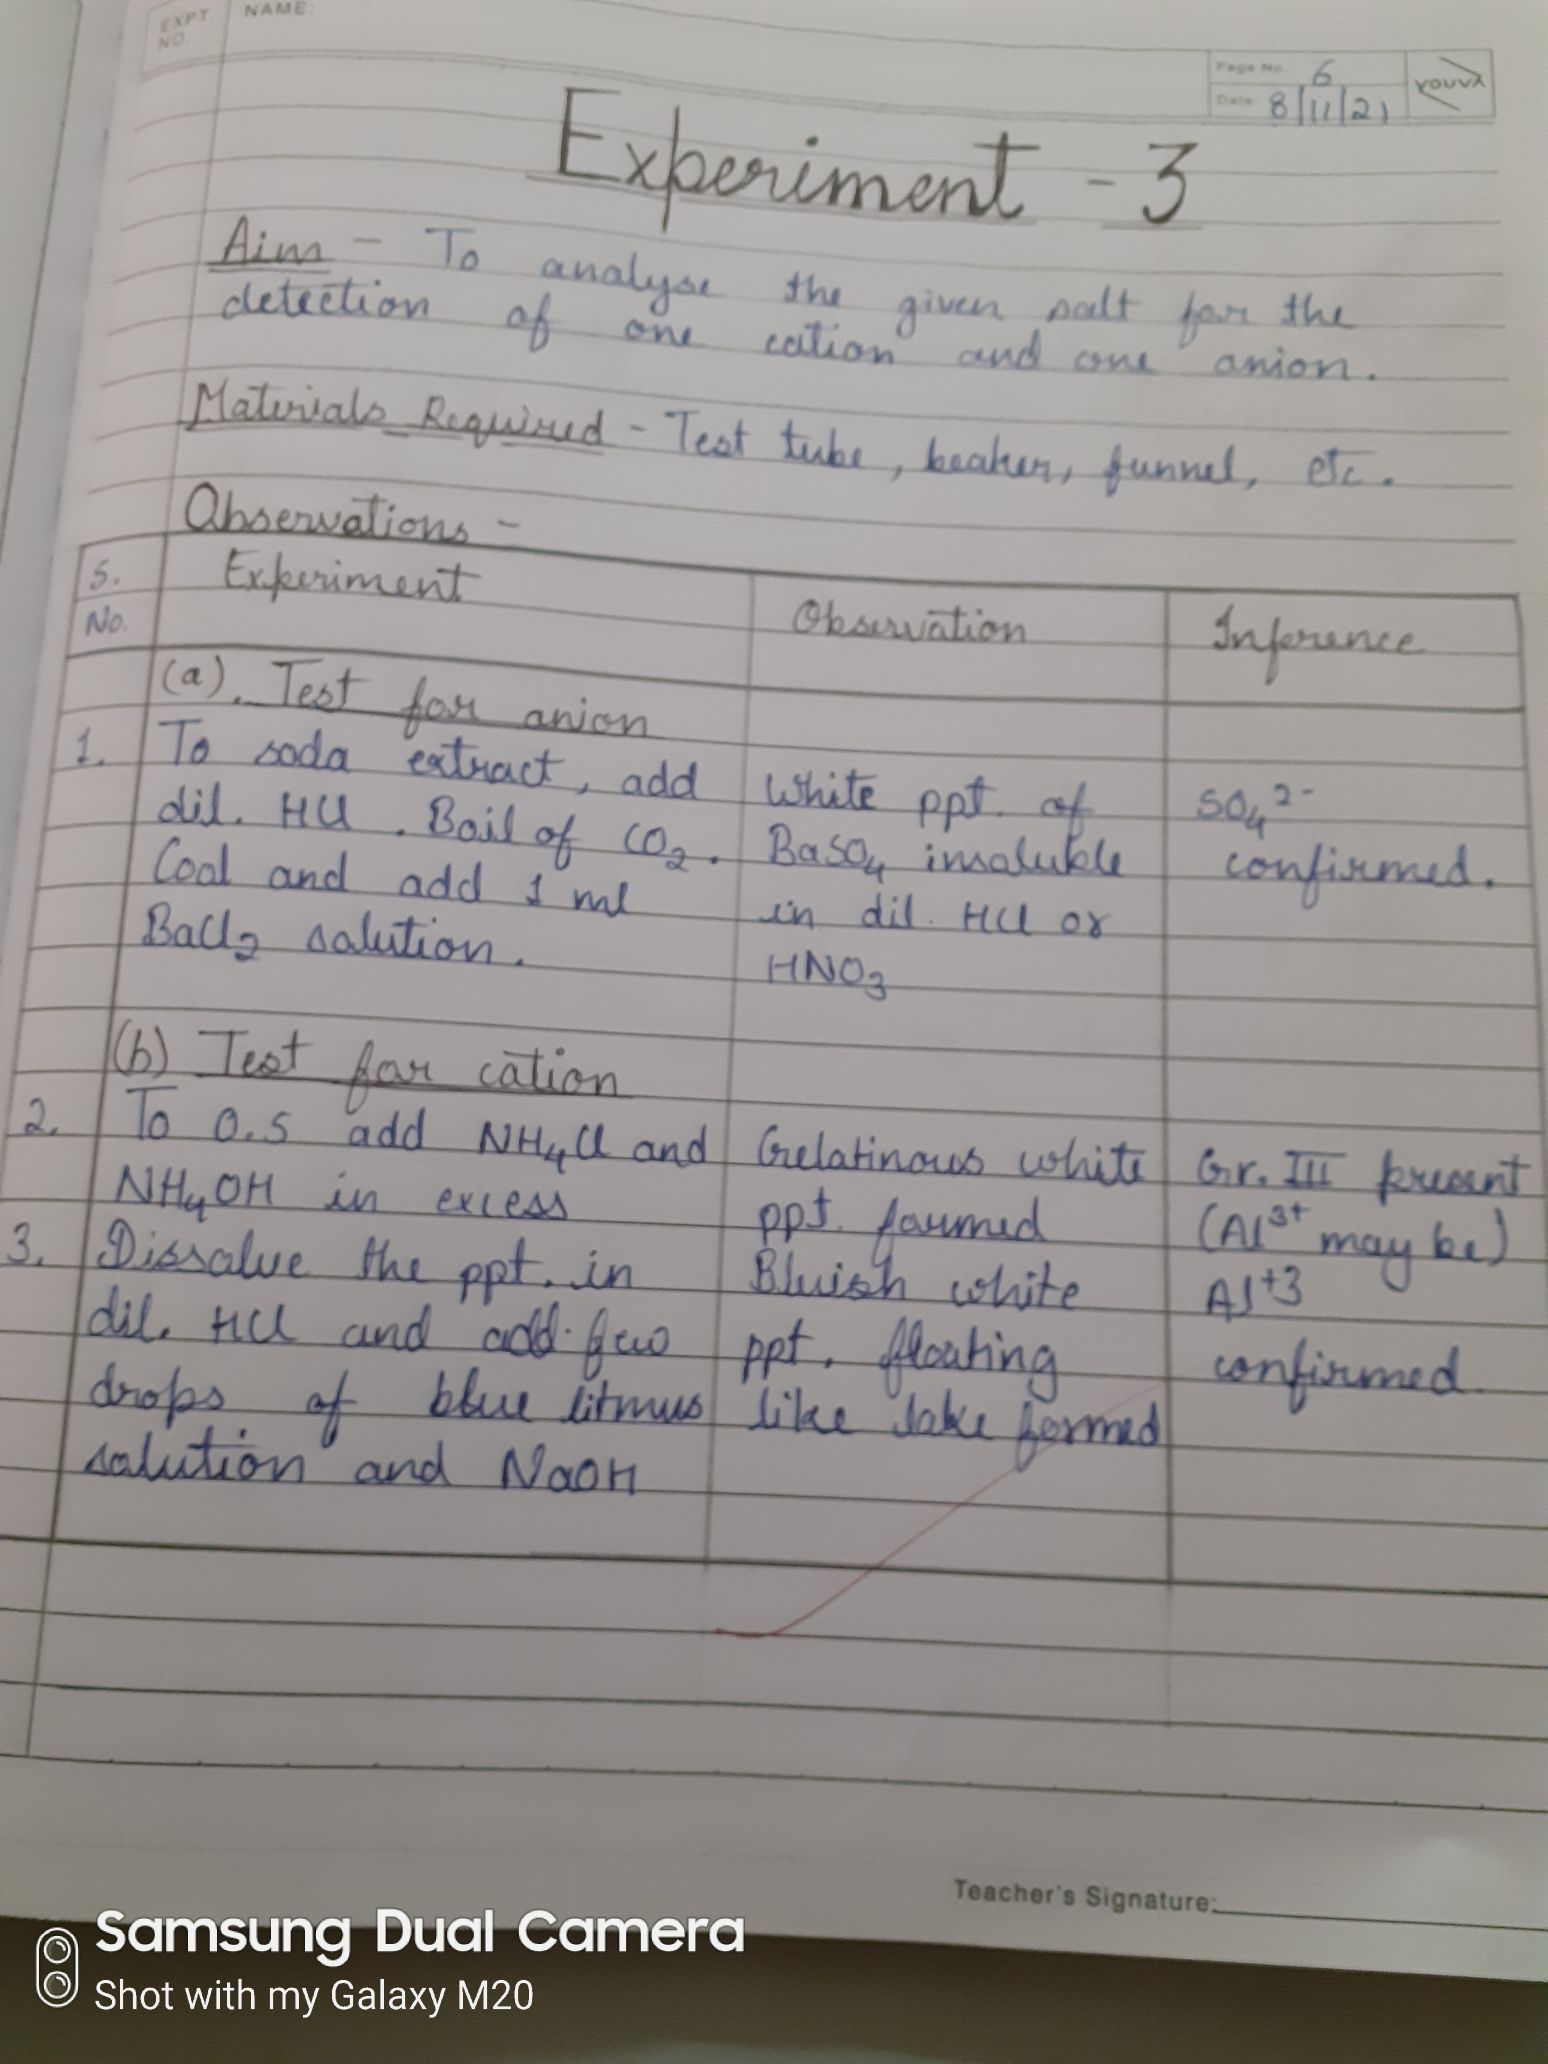 EXPT. NO.
NAME:
Page No. 6
Date 8/11/21
YOUVA
Experiment - 3
Aim - To analyse the given salt for the
detection of one cation and one anion.
Materials Required - Test tube, beaker, funnel, etc.
Observations -
S. No.
Experiment
Observation
Inference
(a). Test for anion
1. To soda extract, add
dil. HCl . Boil of CO2.
Cool and add 1 ml
BaCl2 solution.
White ppt. of
BaSO4 insoluble
in dil. HCl or
HNO3
SO4 2-
confirmed.
(b) Test for cation
2. To O.S add NH4Cl and
NH4OH in excess
Gelatinous white
ppt. formed
Gr. III present
(Al3+ may be)
3. Dissolve the ppt. in
dil. HCl and add few
drops of blue litmus
solution and NaOH
Bluish white
ppt. floating
like lake formed
Al+3
confirmed.
Teacher's Signature:
Samsung Dual Camera
Shot with my Galaxy M20